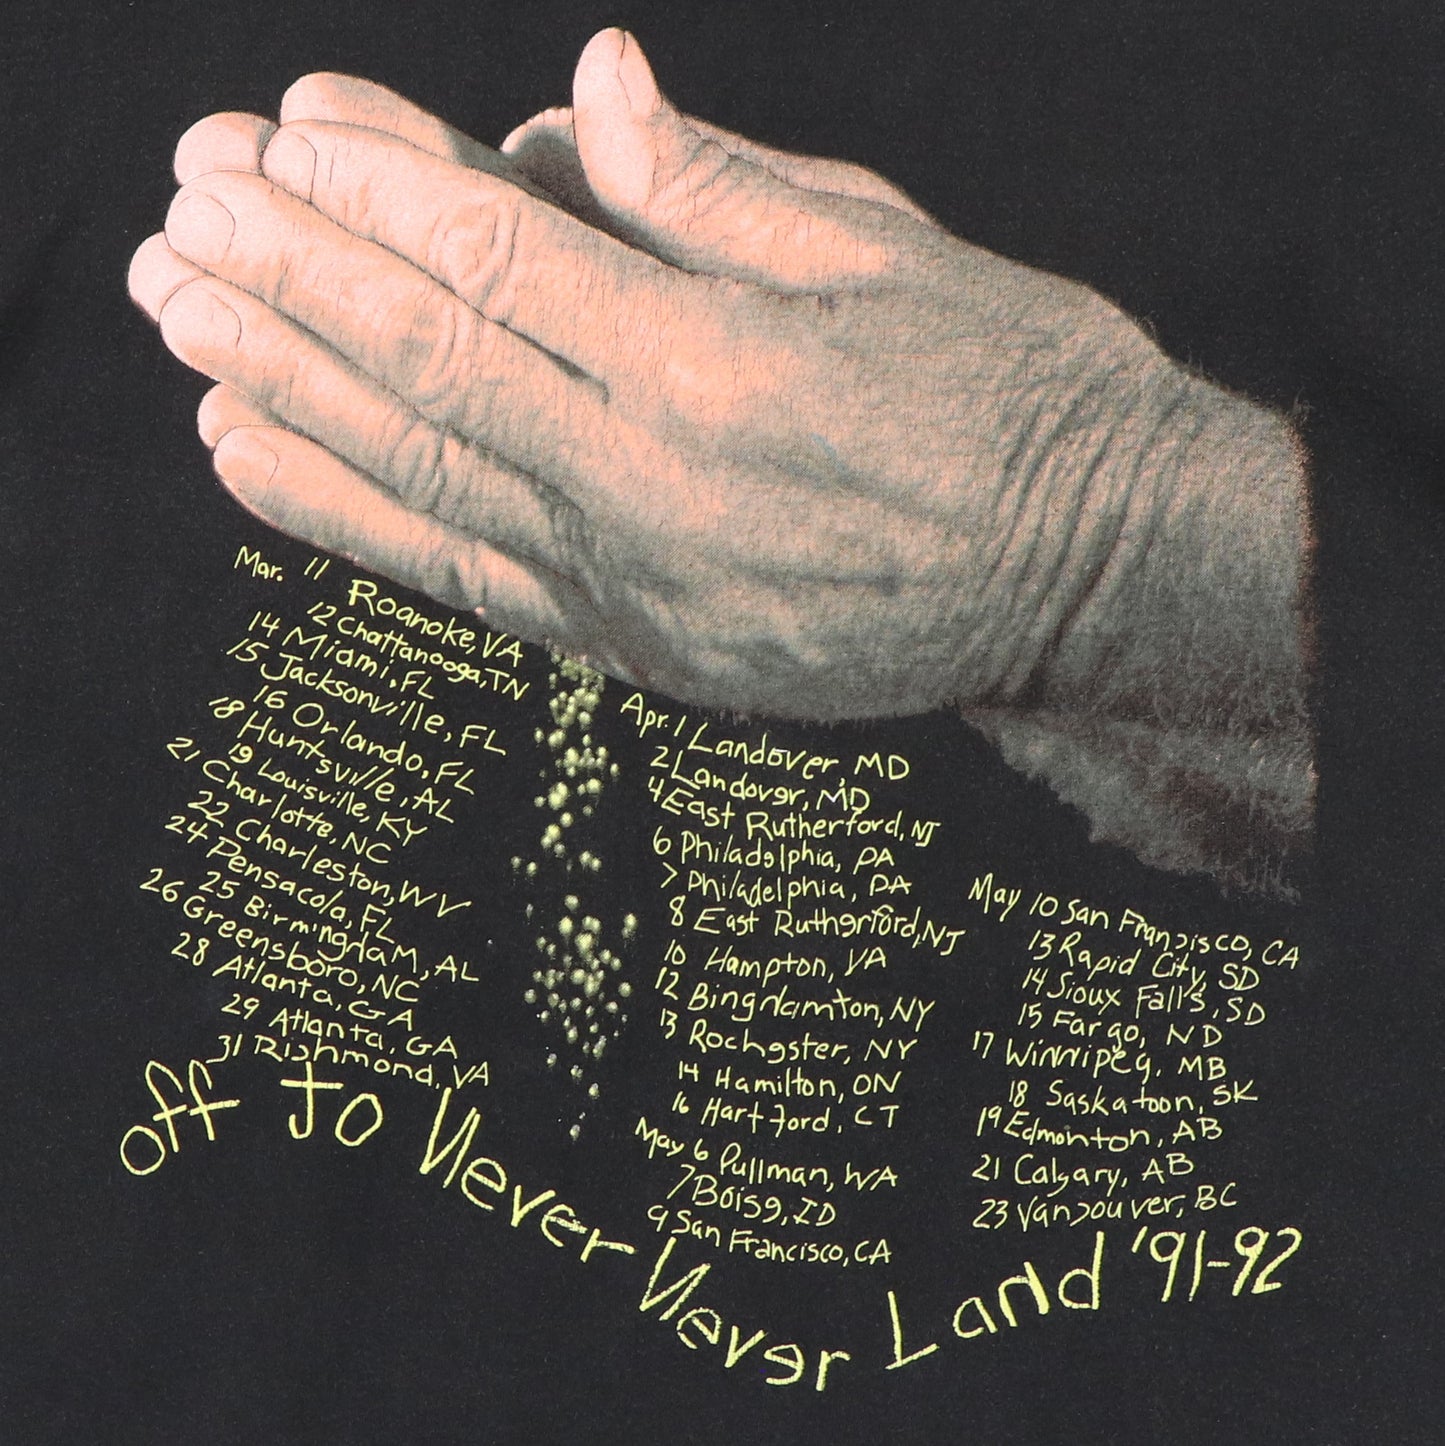 Mar. 11 Roanoke, VA
12 Chattanooga, TN
14 Miami, FL
15 Jacksonville, FL
16 Orlando, FL
18 Huntsville, AL
19 Louisville, KY
21 Charlotte, NC
22 Charleston, WV
24 Pensacola, FL
25 Birmingham, AL
26 Greensboro, NC
28 Atlanta, GA
29 Atlanta, GA
31 Richmond, VA
Apr. 1 Landover, MD
2 Landover, MD
4 East Rutherford, NJ
6 Philadelphia, PA
7 Philadelphia, PA
8 East Rutherford, NJ
10 Hampton, VA
12 Binghamton, NY
13 Rochester, NY
14 Hamilton, ON
16 Hartford, CT
May 6 Pullman, WA
7 Boise, ID
9 San Francisco, CA
May 10 San Francisco, CA
13 Rapid City, SD
14 Sioux Falls, SD
15 Fargo, ND
17 Winnipeg, MB
18 Saskatoon, SK
19 Edmonton, AB
21 Calgary, AB
23 Vancouver, BC
off to Never Never Land '91-92